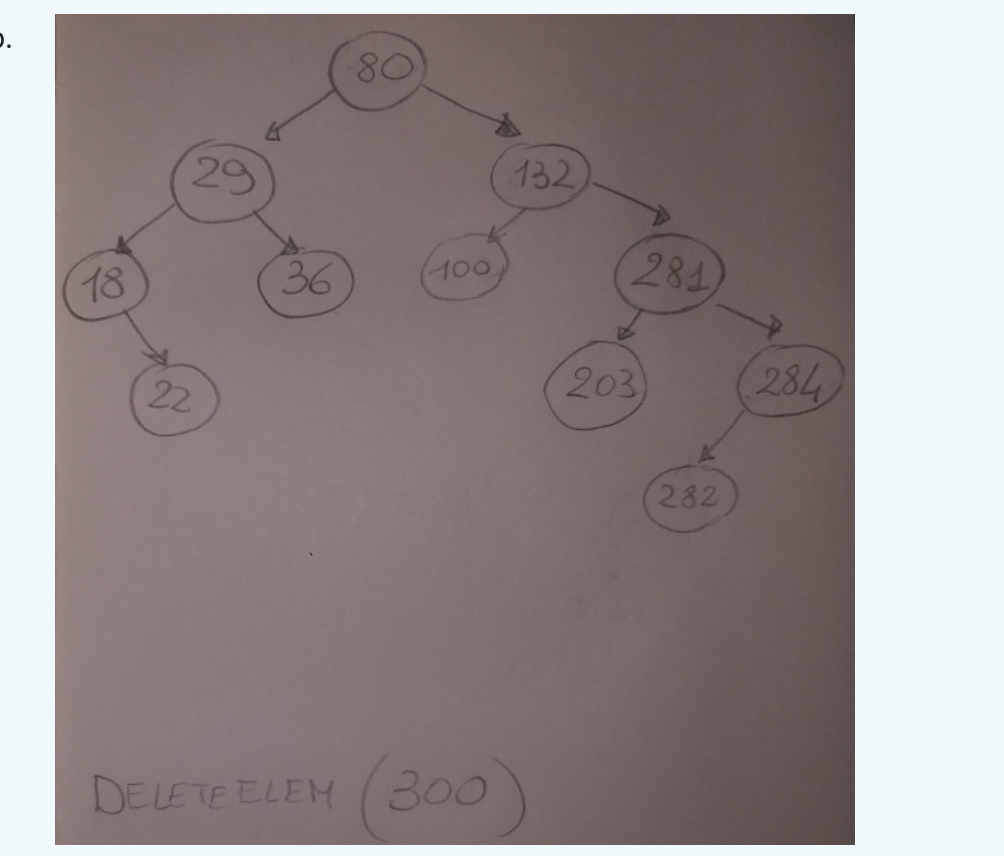 80
29 132
18 36 100 281
22 203 284
282
DELETE ELEM (300)